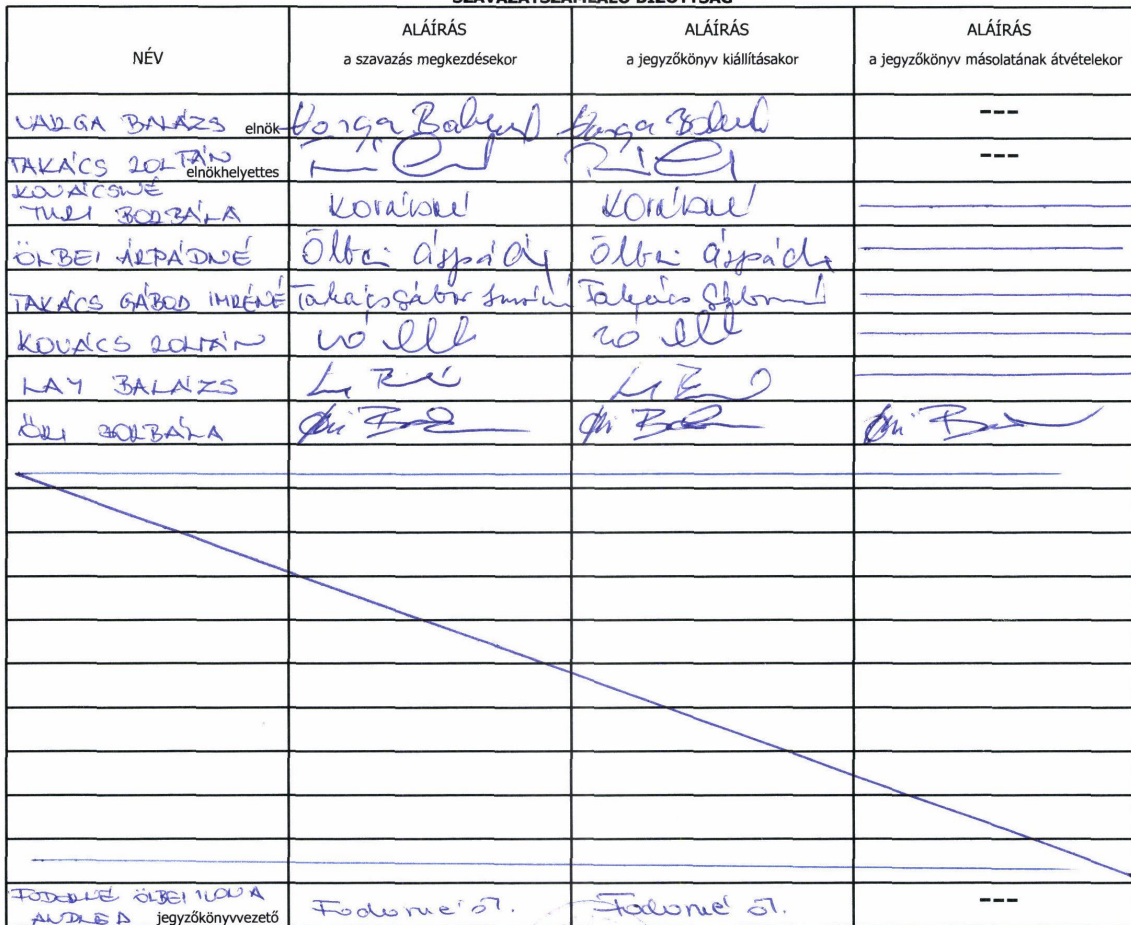 SZAVAZATSZÁMLÁLÓ BIZOTTSÁG
NÉV
ALÁÍRÁS
a szavazás megkezdésekor
ALÁÍRÁS
a jegyzőkönyv kiállításakor
ALÁÍRÁS
a jegyzőkönyv másolatának átvételekor
VARGA BALÁZS elnök Varga Balázs Varga Balázs ---
TAKÁCS ZOLTÁN elnökhelyettes ---
KOVÁCSNÉ
TURI BORBÁLA Kovácsné Kovácsné
ÖLBEI ÁRPÁDNÉ Ölbei Árpádné Ölbei Árpádné
TAKÁCS GÁBOR IMRÉNÉ Takács Gábor Imréné Takács Gáborné
KOVÁCS ZOLTÁN
LAY BALÁZS
ŐRI BORBÁLA Őri Őri Őri
FODORNÉ ÖLBEI ILONA
ANDREA jegyzőkönyvvezető Fodorné Fodorné ---